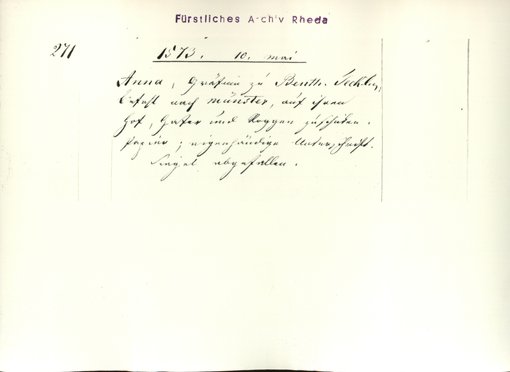 Fürstliches Archiv Rheda
271
1573. 10. mai
Anna, Gräfin zu Benth. Tecklbg,
befiehlt nach münster, auf ihren
Hof, Hafer und Roggen zu
Papier; eigenhändige Unterschrift.
Siegel abgefallen.